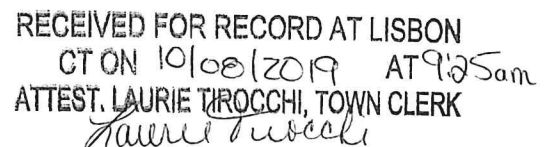 RECEIVED FOR RECORD AT LISBON
CT ON 10/08/2019 AT 9:25am
ATTEST. LAURIE TIROCCHI, TOWN CLERK
Laurie Tirocchi